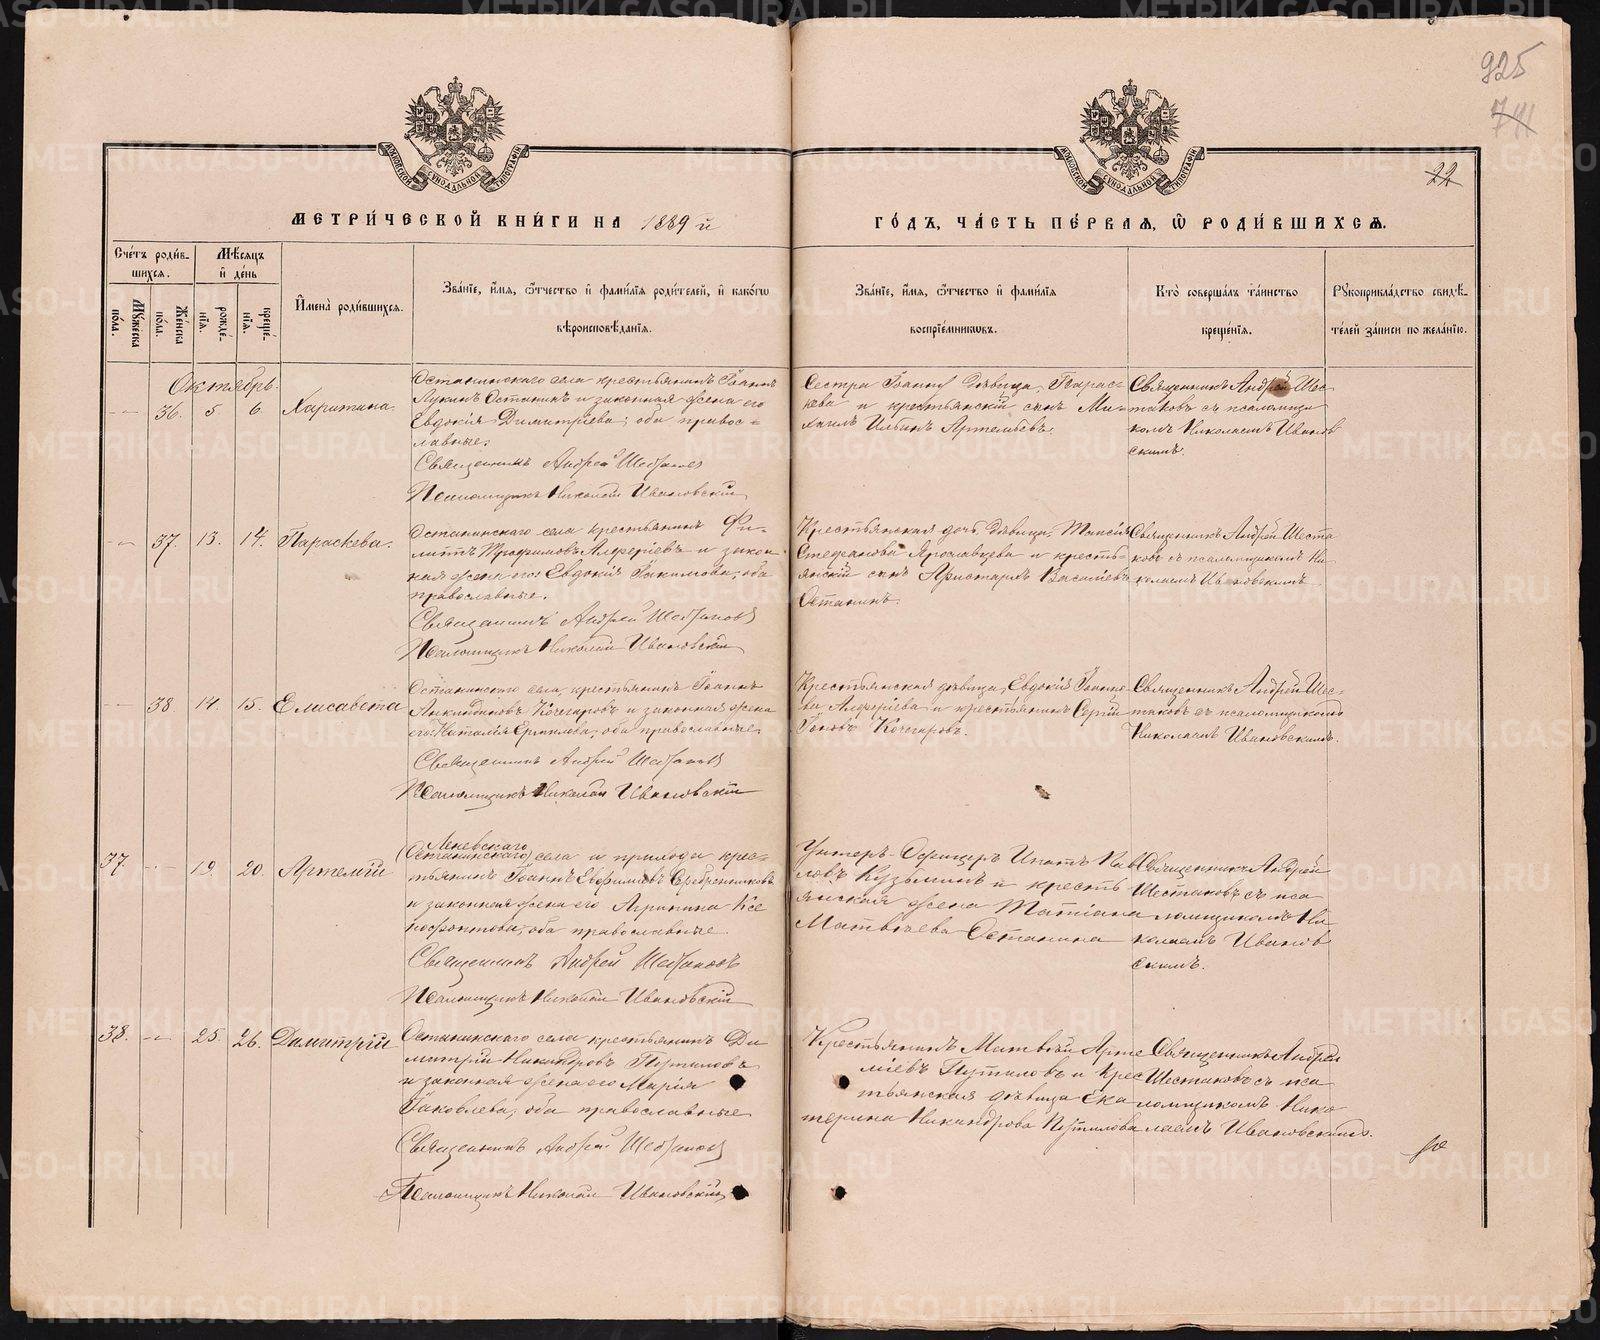 925
741
22
МЕТРИ́ЧЕСКОЙ КНИ́ГИ НА 1889 й
ГО́ДЪ, ЧА́СТЬ ПЕ́РВАѦ, Ѽ РОДИ́ВШИХСѦ.
Сче́тъ роди́в-
шихсѧ.
Мѣ́сѧцъ
и҆ де́нь
И҆мена̀ роди́вшихсѧ.
Зва́нїе, и҆́мѧ, ѻ҆́тчество и҆ фами́лїѧ роди́телей, и҆ како́гѡ
вѣроисповѣ́данїѧ.
Зва́нїе, и҆́мѧ, ѻ҆́тчество и҆ фами́лїѧ
воспрїе́мниковъ.
Кто̀ соверша́лъ та́инство
креще́нїѧ.
Рꙋкоприкла́дство свидѣ́-
телей за́писи по жела́нїю.
Мꙋ́жеска
по́ла.
Же́нска
по́ла.
рожде́-
нїѧ.
креще́-
нїѧ.
Октябрь.
36. 5 6. Харитина.
Останинскаго села крестьянинъ Іоаннъ
Лукинъ Останинъ и законная жена его
Евдокія Димитріева; оба правос-
лавные.
Священникъ Андрей Шестаковъ
Псаломщикъ Николай Ивановскій
Сестра Іоанна дѣвица Парас-
кева и крестьянскій сынъ Ми-
хаилъ Ильинъ Артемьевъ.
Священникъ Андрей Шес-
таковъ съ псаломщи
комъ Николаемъ Иванов
скимъ.
37. 13. 14. Параскева.
Останинскаго села крестьянинъ Фи-
липпъ Трофимовъ Алферіевъ и закон
ная жена его Евдокія Іакимова, оба
православные.
Священникъ Андрей Шестаковъ
Псаломщикъ Николай Ивановскій
Крестьянская дочь дѣвица Таисія
Стефанова Ярославцева и кресть-
янскій сынъ Аристархъ Васильевъ
Останинъ.
Священникъ Андрей Шеста
ковъ съ псаломщикомъ Ни-
колаемъ Ивановскимъ
38 14. 15. Елисавета
Останинскаго села, крестьянинъ Іоаннъ
Кочегаровъ и законная жена
его Наталія Ермилова, оба православные
Священникъ Андрей Шестаковъ
Псаломщикъ Николай Ивановскій
Крестьянская дѣвица Евдокія Іоанно-
ва Алферіева и крестьянинъ Сергій
Іовъ Кочегаровъ.
Священникъ Андрей Шес-
таковъ съ псаломщикомъ
Николаемъ Ивановскимъ.
37. 19. 20. Артемій
Леневскаго
(Останинскаго) села и прихода крес-
тьянинъ Іоаннъ Евфиміевъ Серебренниковъ
и законная жена его Агрипина Ксе
нофонтова, оба православные.
Священникъ Андрей Шестаковъ
Псаломщикъ Николай Ивановскій
Унтеръ-Офицеръ Ипатъ Пав
ловъ Кузьминъ и кресть
янская жена Татіана
Матвѣева Останина
Священникъ Андрей
Шестаковъ съ пса
ломщикомъ Ни-
колаемъ Иванов
скимъ.
38. 25. 26. Димитрій
Останинскаго села крестьянинъ Ди
митрій Никандровъ Путиловъ
и законная жена его Марія
Іаковлева, оба православные
Священникъ Андрей Шестаковъ
Псаломщикъ Николай Ивановскій
Крестьянинъ Матвѣй Арте
міевъ Путиловъ и крес
тьянская дѣвица Ека
терина Никандрова Путилова
Священникъ Андрей
Шестаковъ съ пса
ломщикомъ Нико
лаемъ Ивановскимъ.